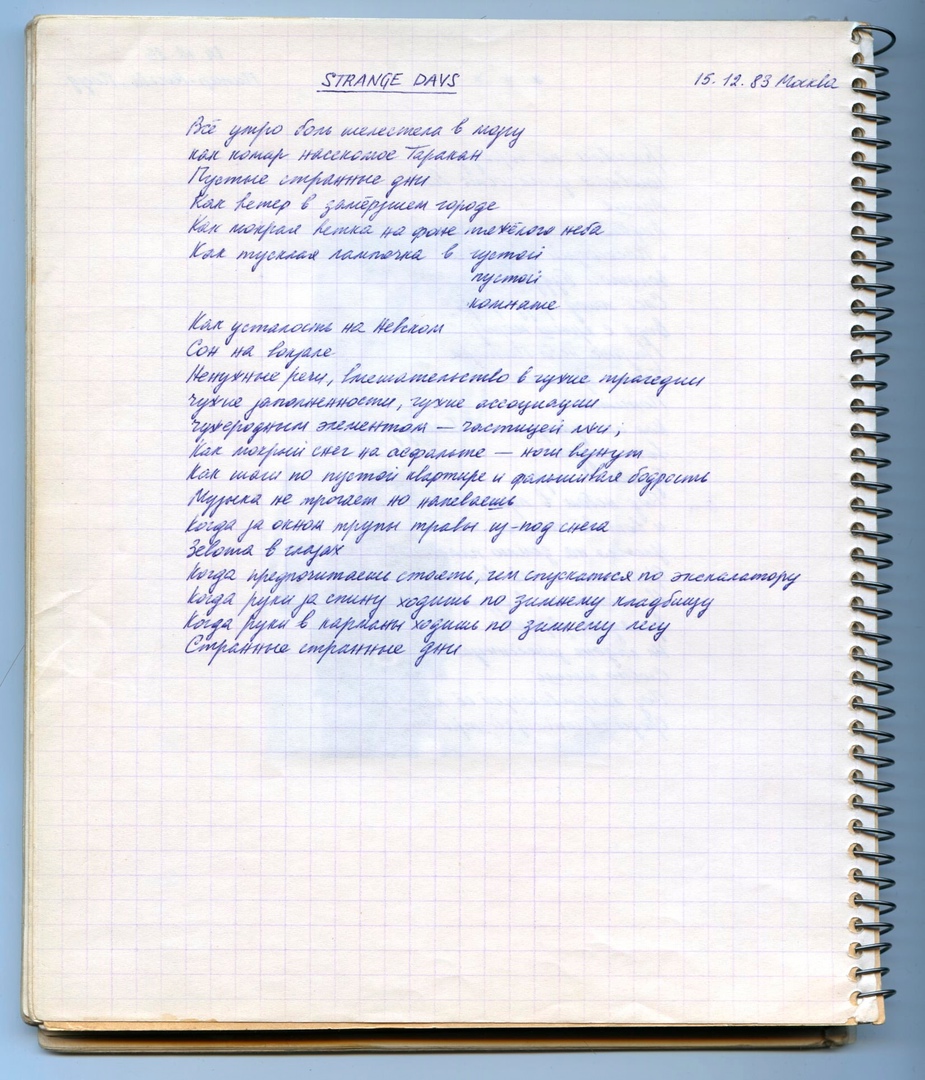 STRANGE DAYS
15.12.83 Москва
Всё утро боль шелестела в мозгу
как комар насекомое Таракан
Пустые странные дни
Как ветер в замёрзшем городе
Как мокрая ветка на фоне тяжёлого неба
Как тусклая лампочка в густой
пустой
комнате
Как усталость на Невском
Сон на вокзале
Ненужные речи, вмешательство в чужие трагедии
чужие наполненности, чужие ассоциации
чужеродным элементом — частицей лжи;
Как мокрый снег на асфальте — ноги вязнут
Как шаги по пустой квартире и фальшивая бодрость
Музыка не трогает но напеваешь
Когда за окном трупы травы из-под снега
Зевота в глазах
Когда предпочитаешь стоять, чем спускаться по эскалатору
Когда руки за спину ходишь по зимнему кладбищу
Когда руки в карманы ходишь по зимнему лесу
Странные странные дни